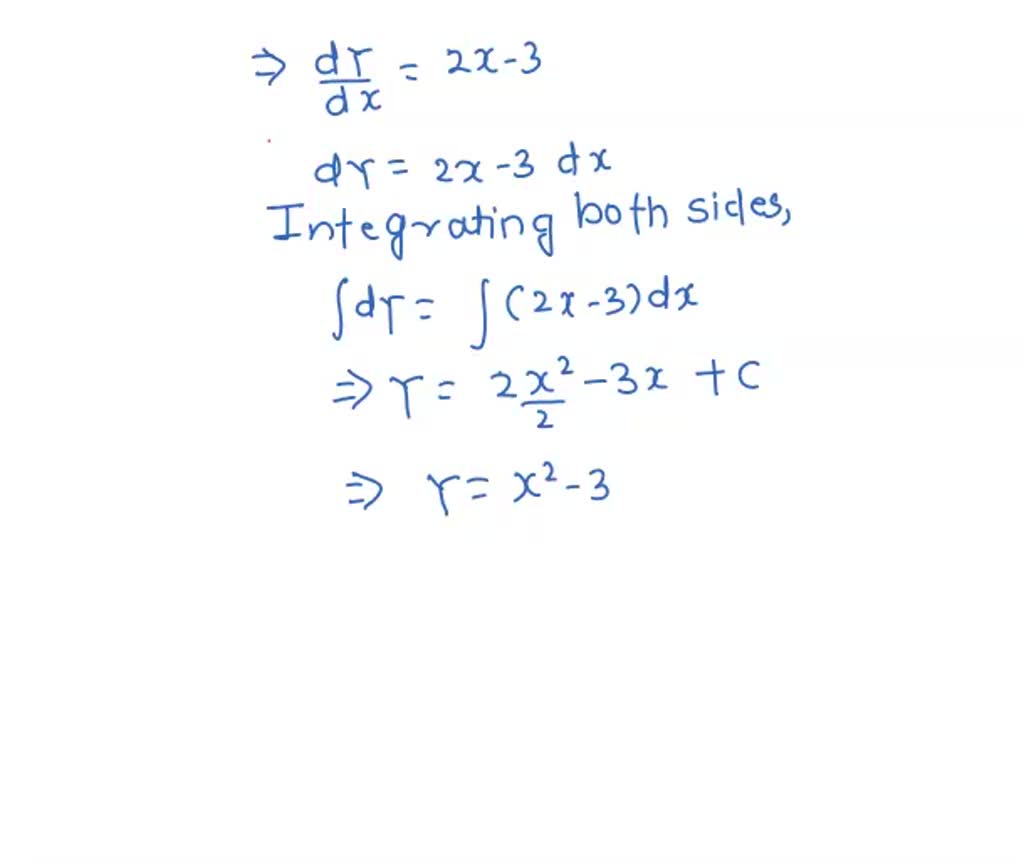 ⇒ dY/dx = 2x-3
dY = 2x-3 dx
Integrating both sides,
∫dY = ∫(2x-3)dx
⇒ Y = 2x²/2 -3x + C
⇒ Y = x²-3